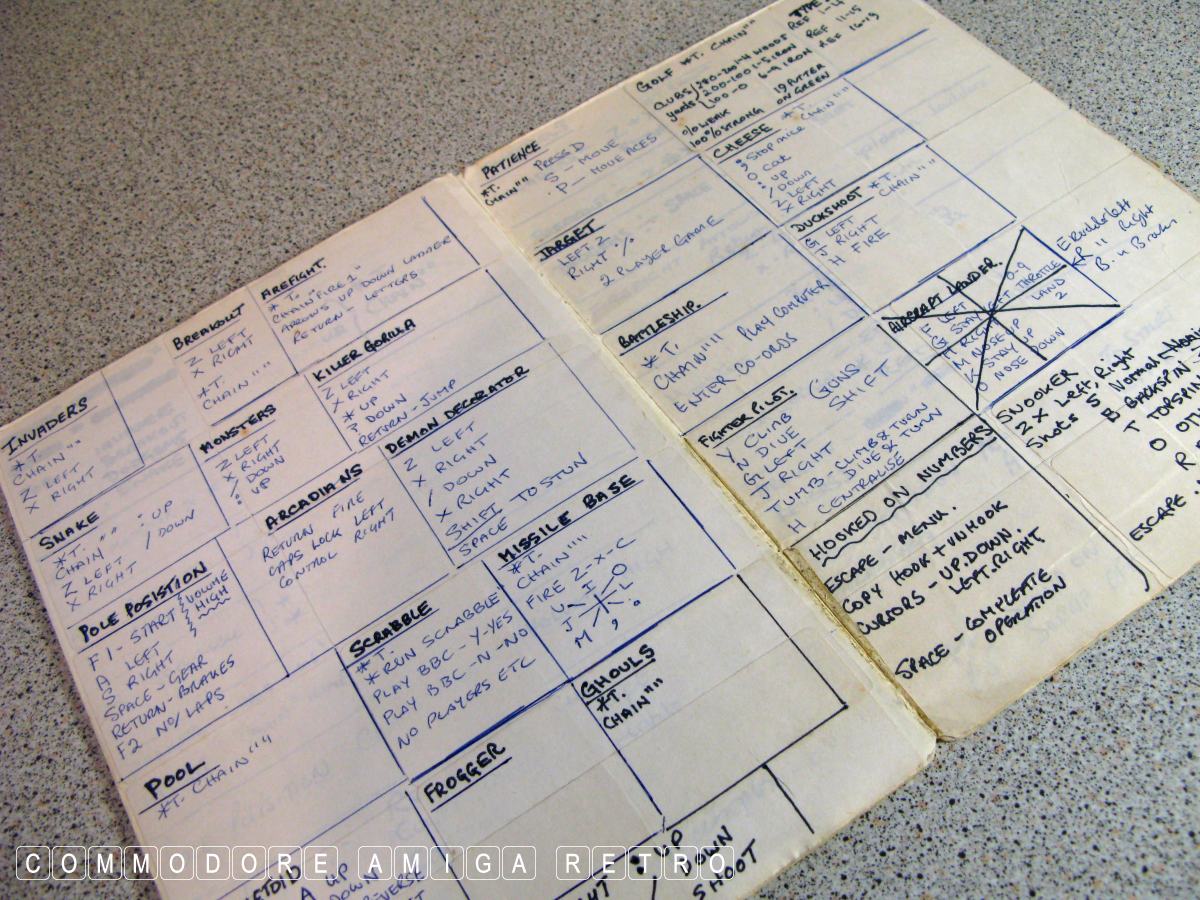 INVADERS
*T.
CHAIN""
Z LEFT
X RIGHT
BREAKOUT
Z LEFT
X RIGHT
*T.
CHAIN""
FIREFIGHT.
*T.
CHAIN"FIRE1"
ARROWS UP DOWN LADDER
RETURN- LETTERS
SNAKE
*T.
CHAIN "" : UP
Z LEFT / DOWN
X RIGHT
MONSTERS
Z LEFT
X RIGHT
/ DOWN
: UP
KILLER GORILLA
Z LEFT
X RIGHT
* UP
? DOWN
RETURN - JUMP
POLE POSISTION
F1- START VOLUME
HIGH
A LEFT
S RIGHT
SPACE - GEAR
RETURN - BRAKES
F2 NO/ LAPS
ARCADIANS
RETURN FIRE
CAPS LOCK LEFT
CONTROL RIGHT
DEMON DECORATOR
Z LEFT
X RIGHT
/ DOWN
X RIGHT
SHIFT TO STUN
SPACE
POOL
*T. CHAIN""
SCRABBLE
*T.
*RUN SCRABBLE
PLAY BBC - Y-YES
PLAY BBC -N-NO
NO PLAYERS ETC
MISSILE BASE
*T.
CHAIN""
FIRE Z-X-C
U I O
J L
M , .
FROGGER
GHOULS
*T.
CHAIN""
A UP
DOWN
: UP
/ DOWN
SHOOT
PATIENCE
*T. PRESS D
CHAIN"" S - MOVE
P - MOVE ACES
GOLF *T. CHAIN""
CLUBS 280-200 1-4 WOODS REF
yards 200-100 1-5 IRON REF 11-15
100-0 6-9 IRON REF 16-19
0% WEAK 19 PUTTER
100% STRONG ON GREEN
TARGET
LEFT Z
RIGHT %
2 PLAYER GAME
CHEESE *T.
CHAIN""
; Stop mice
O Cat
: UP
/ DOWN
Z LEFT
X RIGHT
BATTLESHIP.
*T.
CHAIN"" PLAY COMPUTER
ENTER CO-ORDS
DUCKSHOOT *T.
CHAIN""
G LEFT
J RIGHT
H FIRE
FIGHTER PILOT.
Y CLIMB GUNS
N DIVE SHIFT
G LEFT
J RIGHT
TUMB CLIMB & TURN
DIVE & TURN
H CENTRALISE
AIRCRAFT LANDER.
0-9
LEFT THROTTLE
G STAY LAND
RIGHT 2
M NOSE UP
K STAY UP
O NOSE DOWN
E Rudder left
R " Right
B " Brakes
HOOKED ON NUMBERS
ESCAPE - MENU.
COPY HOOK + UNHOOK
CURSORS - UP.DOWN.
LEFT.RIGHT.
SPACE - COMPLEATE
OPERATION
SNOOKER
Z X Left, Right
Shots S Normal
B BACKSPIN
T TOPSPIN
O
R
ESCAPE
COMMODORE AMIGA RETRO